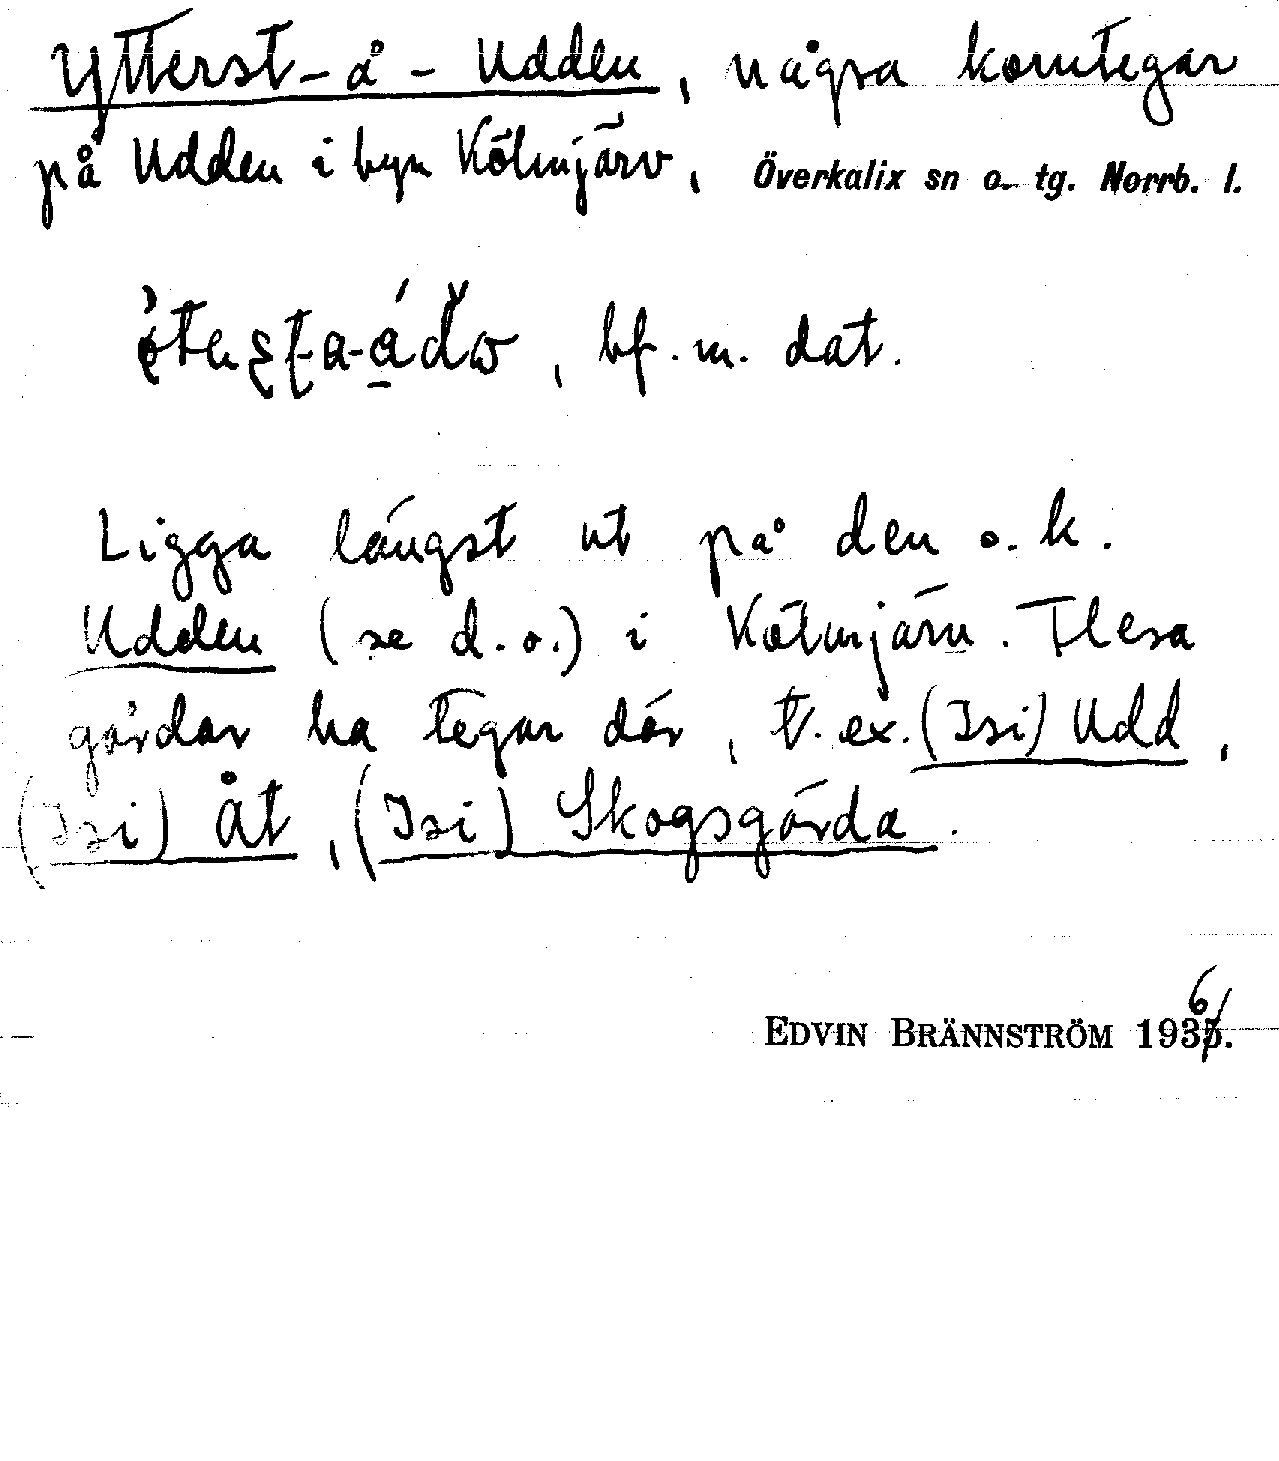 Ytterst-å-Udden, några korntegar
på Udden i byn Kölmjärv, Överkalix sn o. tg. Norrb. l.
bf. m. dat.
Ligga längst ut på den s. k.
Udden (se d. o.) i Kölmjärv. Flera
gårdar ha tegar där, t. ex. (Isi) Udd,
(Isi) Åt, (Isi) Skogsgårda.
EDVIN BRÄNNSTRÖM 1936.